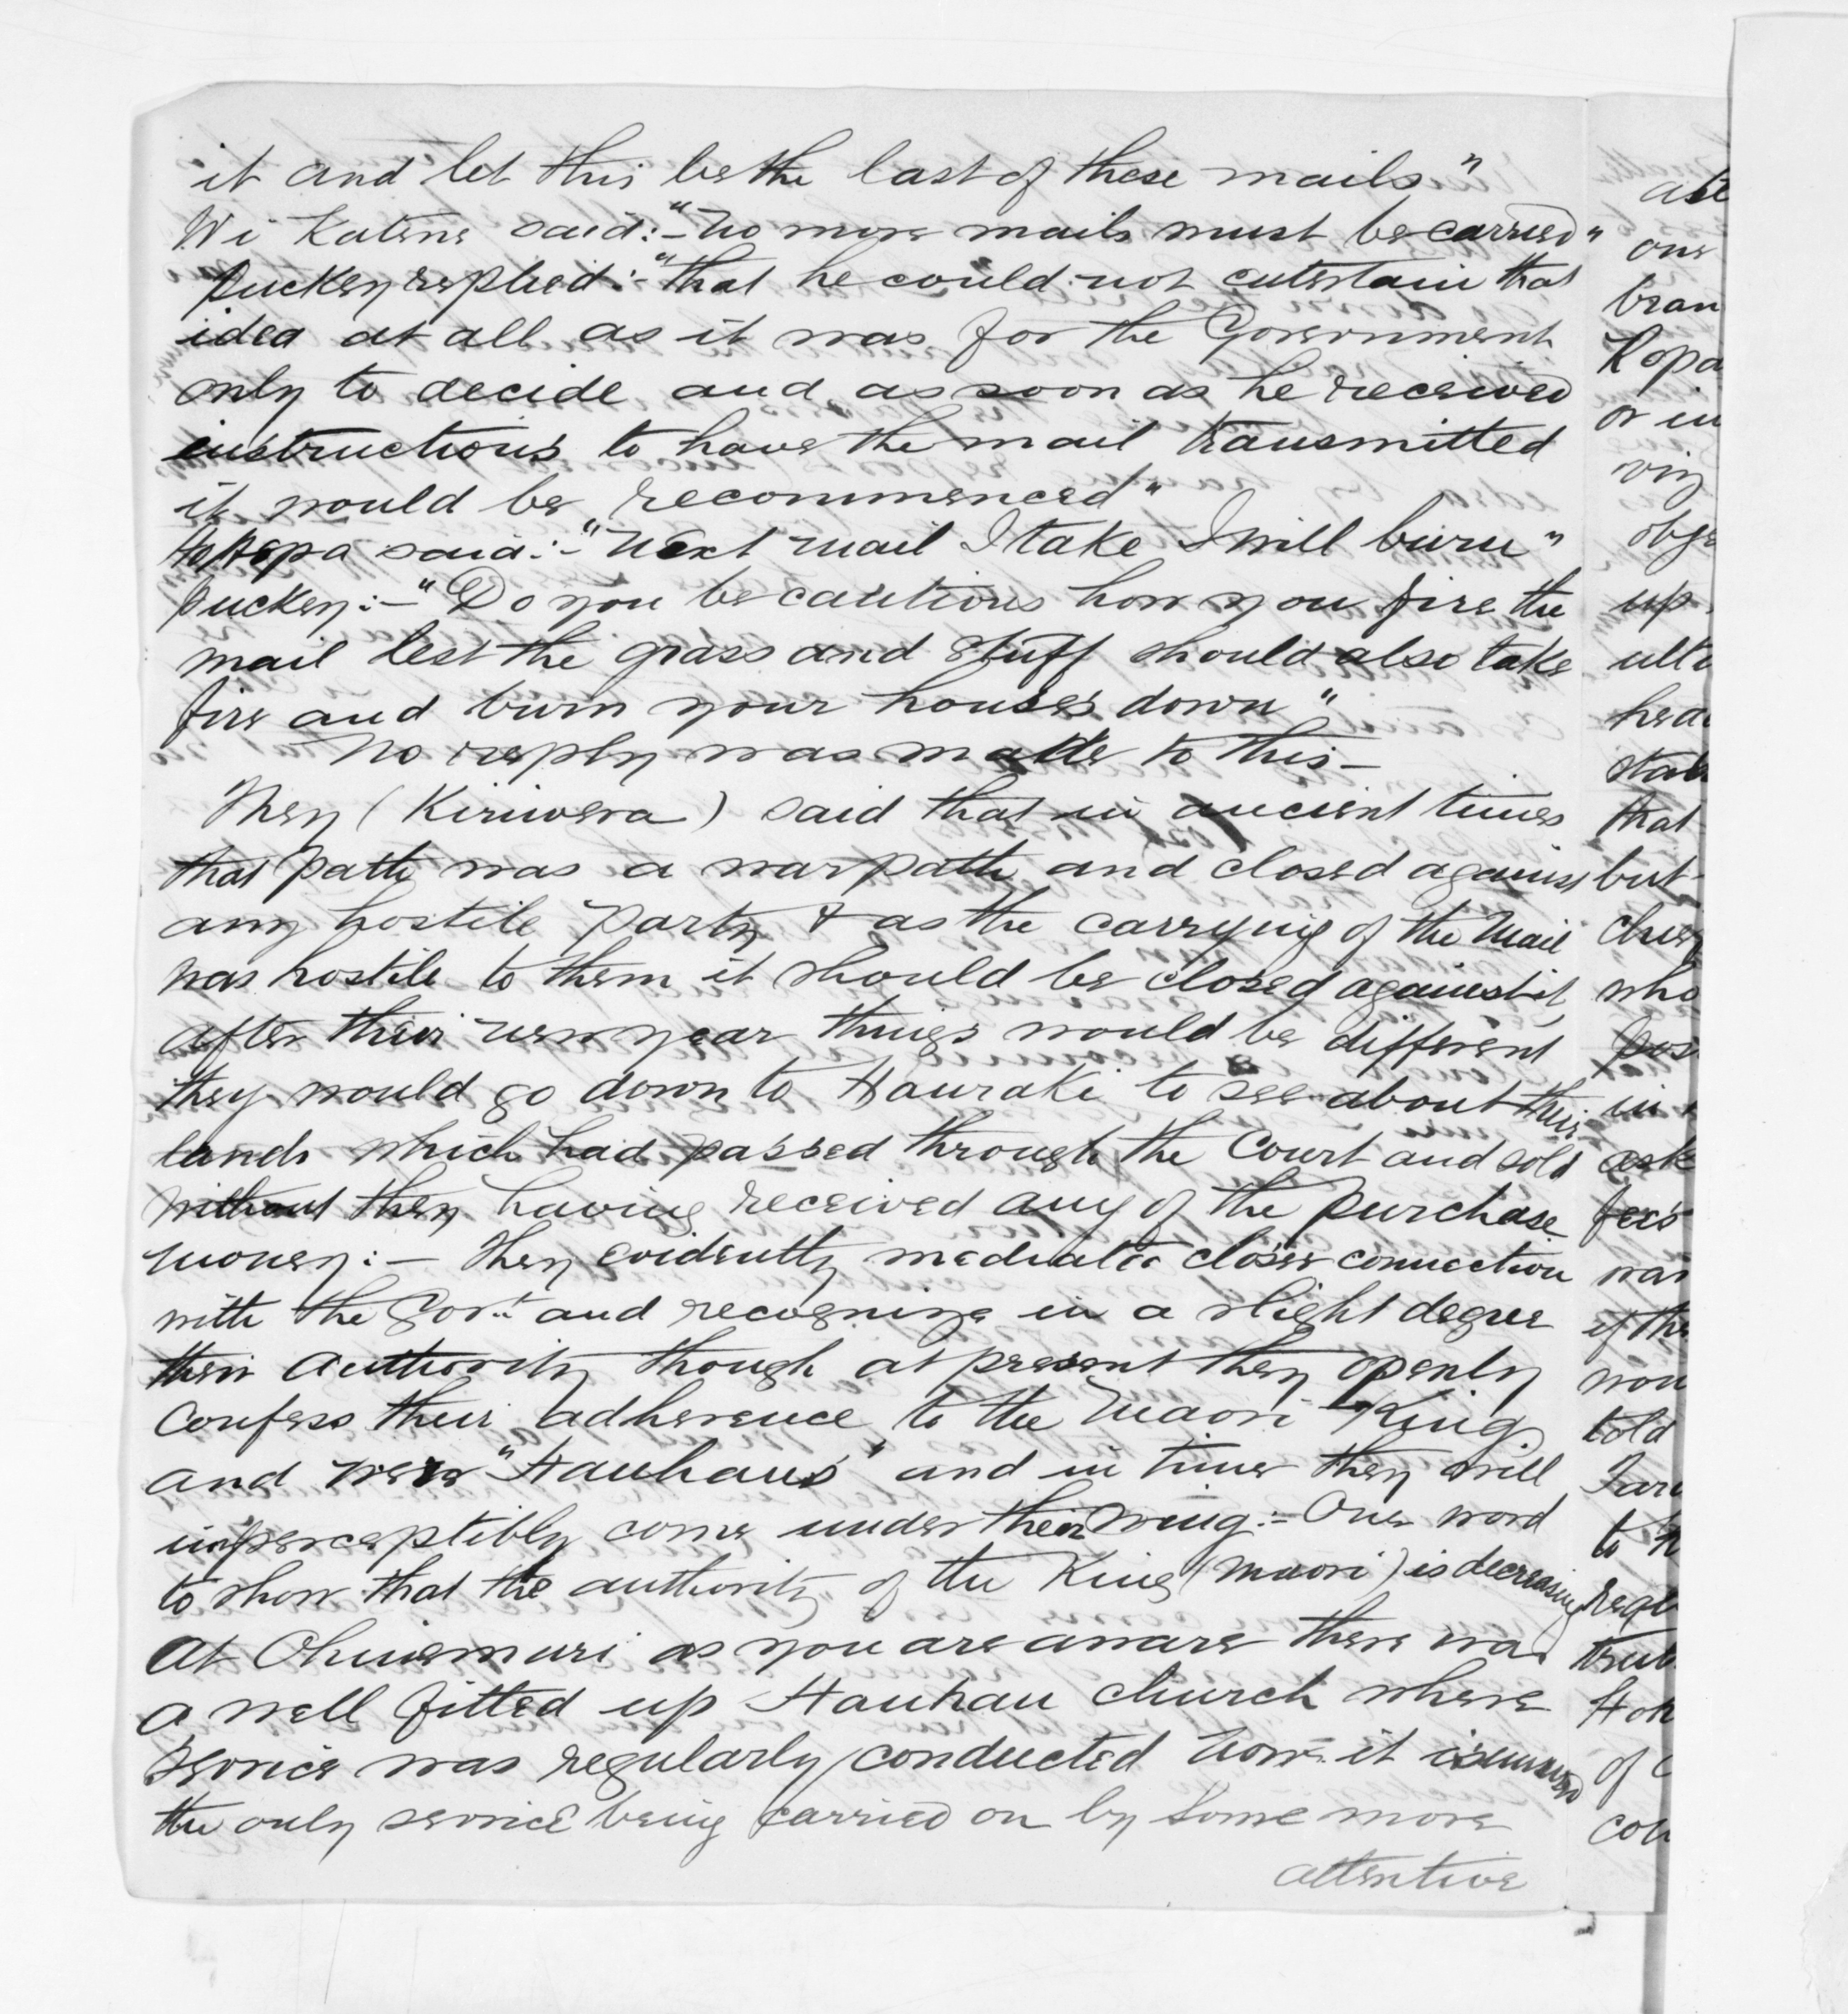 it and let this be the last of these mails"
Wi Katene said:- "No more mails must be carried"
Puckey replied:- "that he could not entertain that
idea at all as it was for the Government
only to decide and as soon as he received
instructions to have the mail transmitted
it would be recommenced"
said:- "Next mail I take I will burn"
Puckey:- "Do you be cautious how you fire the
mail lest the grass and stuff should also take
fire and burn your houses down"
No reply was made to this -
They (Kiriwera) said that in ancient times
that path was a war path and closed against
any hostile party & as the carrying of the Mail
was hostile to them it should be closed against it
after their new year things would be different
they would go down to Hauraki to see about their
lands which had passed through the Court and sold
without they having received any of the purchase
money:- They evidently mediate closer connection
with the Govt. and recognize in a slight degree
their authority though at present they openly
confess their adherence to the Maori King
and were "Hauhaus" and in time they will
imperceptibly come under their wing:- One word
to show that the authority of the King (Maori) is decreasing
At Ohinemuri as you are aware there was
a well fitted up Hauhau church where
service was regularly conducted Now it is unused
the only service being carried on by some more
attentive
one
or in
up
that
but
who
in
told
of